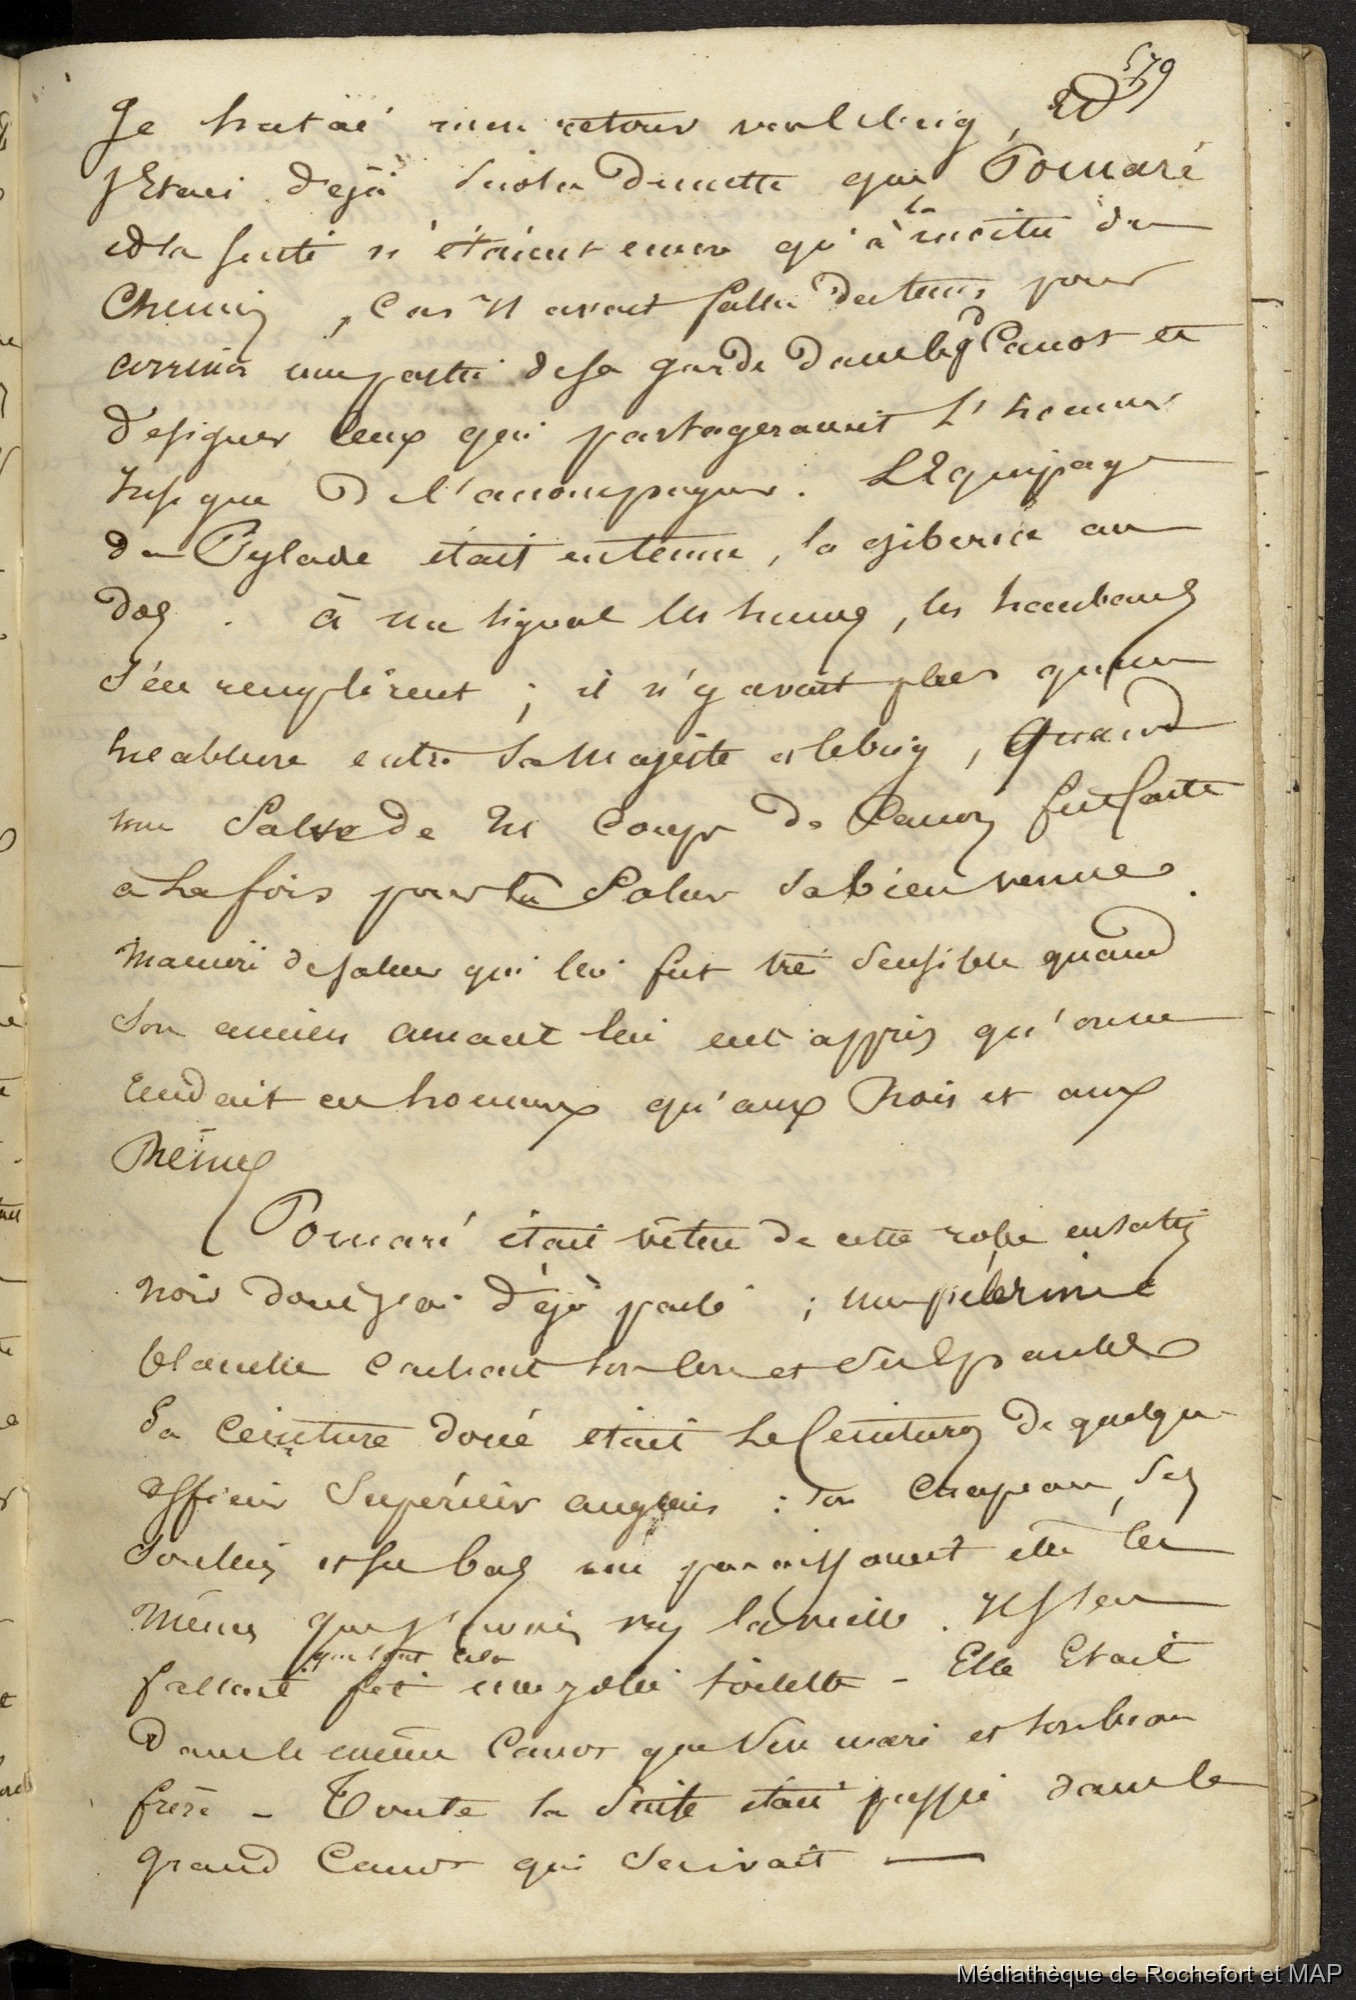 579
Je hatai mon retour vers le brig, et
j'Etais déjà sur la dunette que Pomaré
et sa suite n'étaient encore qu'à la moitié du
Chemin, Car il avait fallu du tems pour
arrimer une partie de sa garde dans le gd Canot et
désigner ceux qui partageraient L'honneur
insigne De l'accompagner. L'Equipage
du Pylade était en tenue, la giberne au
dos. à un signal les hunes, les haubans
s'en remplirent; il n'y avait plus qu'une
encablure entre Sa Majesté et le brig, quand
une Salve de 21 Coups de Canon fut faite
à la fois pour la Saluer sa bien venue.
manière de saluer qui lui fut très Sensible quand
son ancien amant lui eut appris qu'on ne
rendait ces honneurs qu'aux Rois et aux
Reines
Pomaré était vêtue de cette robe en satin
noir dont j'ai déjà parlé; une pélerine
blanche cachait son cou et ses Epaules
Sa Ceinture dorée était le Ceinturon de quelque
officier Supérieur anglais : son Chapeau, ses
souliers et ses bas me paraissaient être les
mêmes que j'avais vus la veille. Il s'en
fallait que tout cela fit une jolie toilette - Elle Etait
dans le même Canot que son mari et son beau
frère - Toute la Suite était pressée dans le
grand Canot qui Suivait —
Médiathèque de Rochefort et MAP